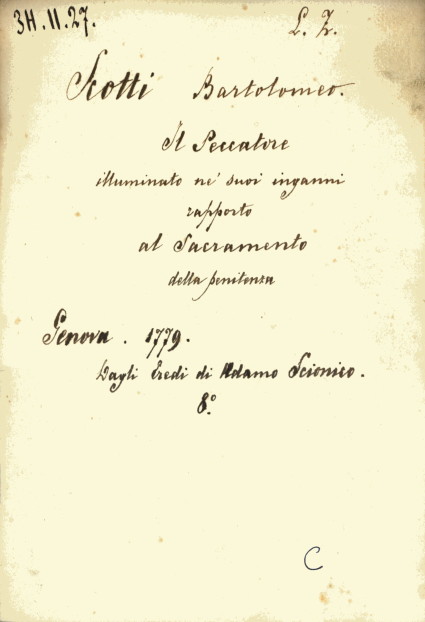 3H.11.27.
L. Z.
Scotti Bartolomeo.
Il Peccatore
illuminato ne' suoi inganni
rapporto
al Sacramento
della penitenza
Genova. 1779.
Dagli Eredi di Adamo Scionico.
8.°
C